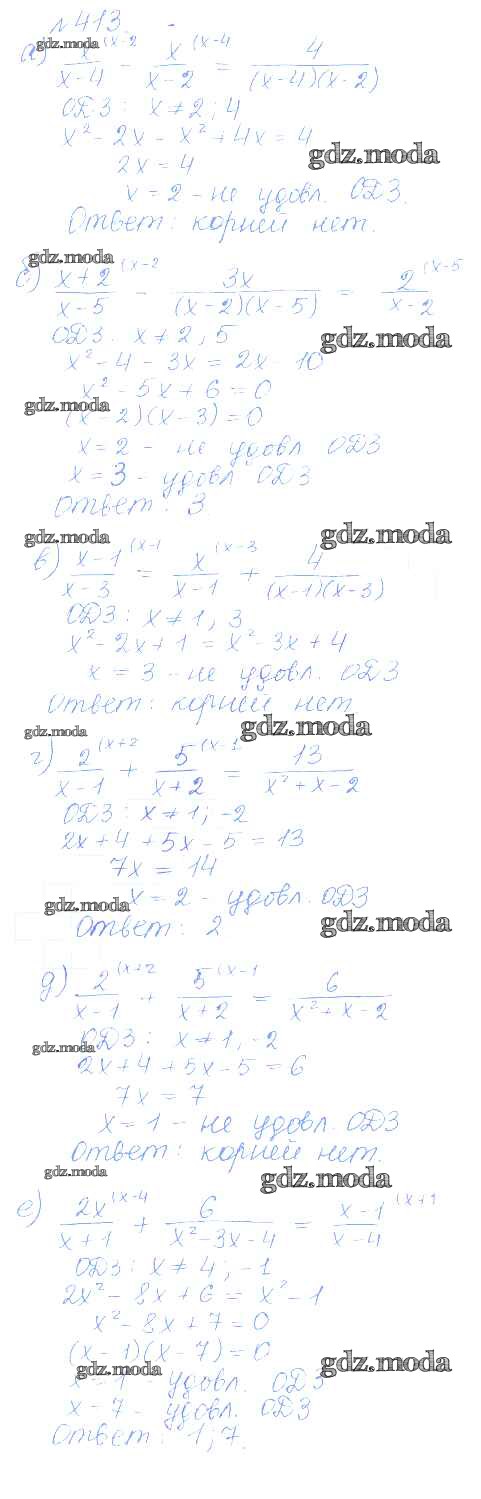 №413
gdz.moda
а) x^(x-2 / x-4 - x^(x-4 / x-2 = 4 / (x-4)(x-2)
ОДЗ: x ≠ 2; 4
x² - 2x - x² + 4x = 4
2x = 4
gdz.moda
x = 2 - не удовл. ОДЗ.
Ответ: корней нет.
gdz.moda
б) x+2^(x-2 / x-5 - 3x / (x-2)(x-5) = 2^(x-5 / x-2
ОДЗ. x ≠ 2, 5
gdz.moda
x² - 4 - 3x = 2x - 10
x² - 5x + 6 = 0
gdz.moda
(x-2)(x-3) = 0
x = 2 - не удовл ОДЗ
x = 3 - удовл ОДЗ
Ответ: 3
gdz.moda
gdz.moda
в) x-1^(x-1 / x-3 = x^(x-3 / x-1 + 4 / (x-1)(x-3)
ОДЗ: x ≠ 1, 3
x² - 2x + 1 = x² - 3x + 4
x = 3 - не удовл. ОДЗ
Ответ: корней нет
gdz.moda
gdz.moda
г) 2^(x+2 / x-1 + 5^(x-1 / x+2 = 13 / x²+x-2
ОДЗ: x ≠ 1; -2
2x + 4 + 5x - 5 = 13
7x = 14
x = 2 - удовл. ОДЗ
gdz.moda
Ответ: 2
gdz.moda
д) 2^(x+2 / x-1 + 5^(x-1 / x+2 = 6 / x²+x-2
ОДЗ: x ≠ 1, -2
gdz.moda
2x + 4 + 5x - 5 = 6
7x = 7
x = 1 - не удовл. ОДЗ
Ответ: корней нет.
gdz.moda
gdz.moda
е) 2x^(x-4 / x+1 + 6 / x²-3x-4 = x-1^(x+1 / x-4
ОДЗ: x ≠ 4; -1
2x² - 8x + 6 = x² - 1
x² - 8x + 7 = 0
(x-1)(x-7) = 0
gdz.moda
gdz.moda
x = 1 - удовл. ОДЗ
x - 7 - удовл. ОДЗ
Ответ: 1; 7.